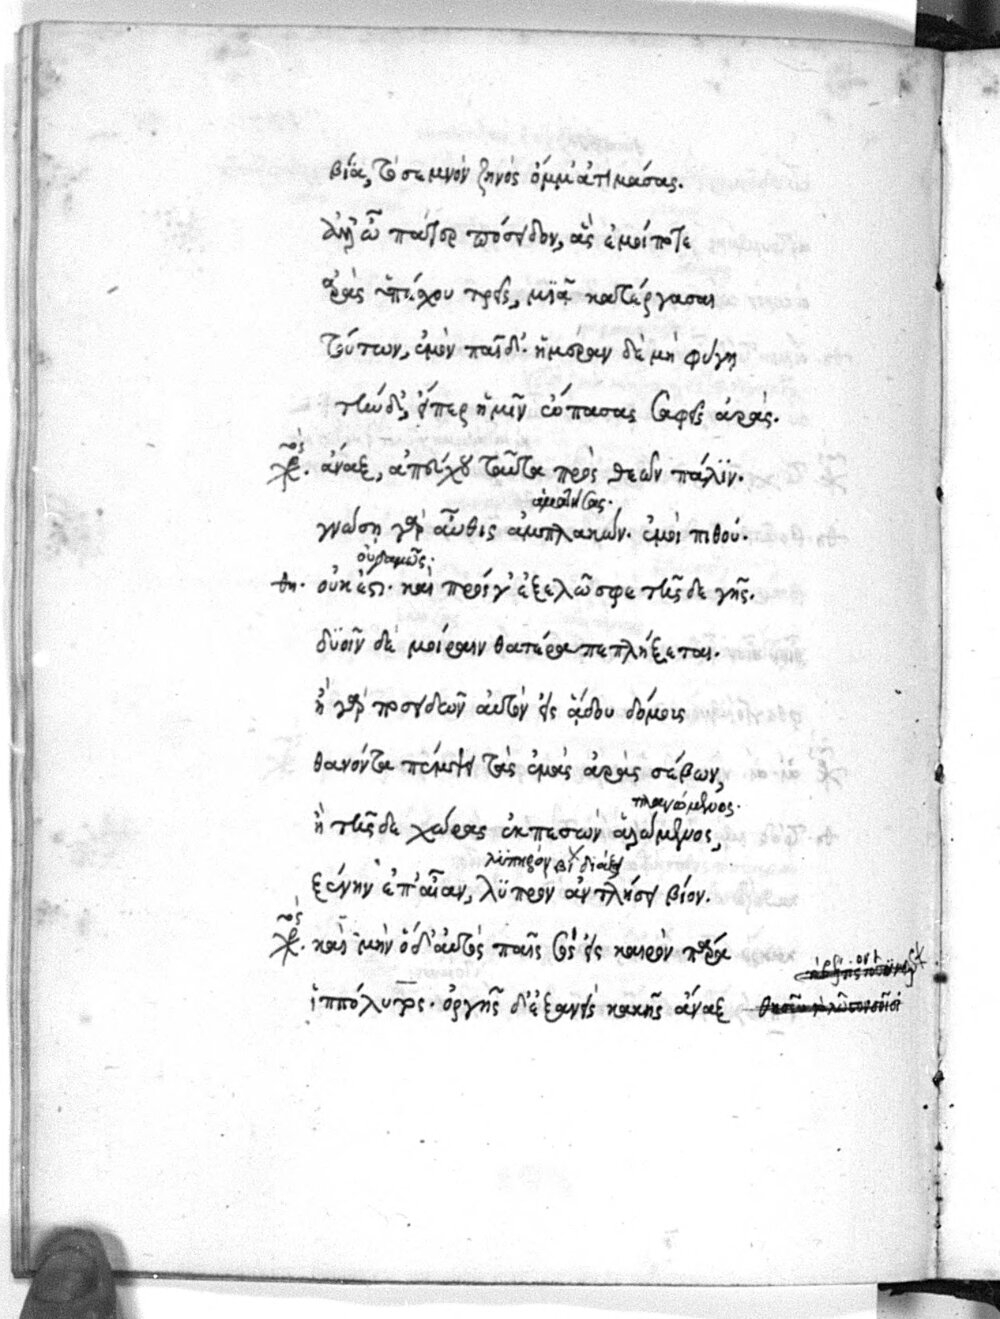 βίᾳ, τὸ σεμνὸν ζηνὸς ὄμμ' ἀτιμάσας.
ἀλλ' ὦ πάτερ πόσειδον, ἃς ἐμοί ποτε
ἀρὰς ὑπέσχου τρεῖς, μιᾷ κατέργασαι
τούτων, ἐμὸν παῖδ'· ἡμέραν δὲ μὴ φύγῃ
τήνδ', εἴπερ ἡμῖν ὤπασας σαφεῖς ἀράς.
χορος. ἄναξ, ἀπεύχου ταῦτα πρὸς θεῶν πάλϊν·
ἁμαρτήσας·
γνώσῃ γὰρ αὖθις ἀμπλακών· ἐμοὶ πιθοῦ·
οὐδαμῶς·
θη· οὐκ ἔστι· καὶ πρός γ' ἐξελῶ σφε τῆσδε γῆς.
δϋοῖν δὲ μοίραιν θατέρᾳ πεπλήξεται·
ἢ γὰρ ποσειδῶν αὐτὸν εἰς ᾅδου δόμοις
θανόντα πέμψει τὰς ἐμὰς ἀρὰς σέβων,
πλανώμενος·
ἢ τῆσδε χώρας ἐκπεσὼν ἀλώμενος,
λϋπηρὸν βίον διάξει
ξένην ἐπ' αἶαν, λϋπρὸν ἀντλήσει βίον.
χορος. καὶ μὴν ὅδ' αὐτὸς παῖς σὸς εἰς καιρὸν πάρα
ἱππόλυτος· ὀργῆς δ' ἐξανεὶς κακῆς ἄναξ